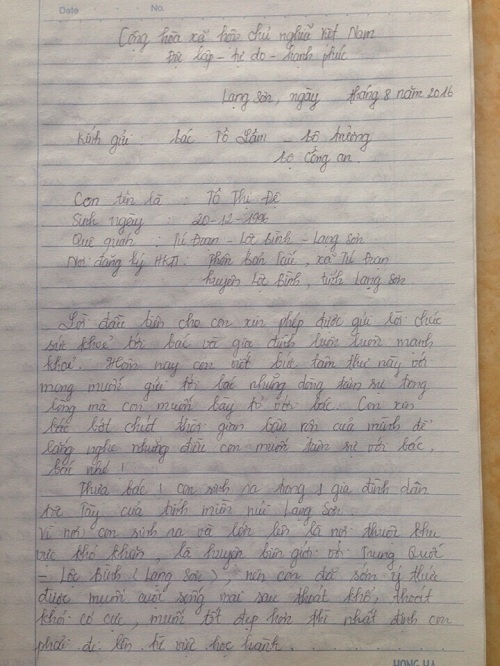 Date No.
Cộng hòa xã hội chủ nghĩa Việt Nam
Độc lập - tự do - hạnh phúc
Lạng Sơn, ngày tháng 8 năm 2016
Kính gửi : bác Tô Lâm - bộ trưởng
bộ Công an.
Con tên là : Tô Thị Đệ
Sinh ngày : 20-12-1996
Quê quán : Tú Đoạn - Lộc Bình - Lạng Sơn
Nơi đăng ký HKTT: Thôn , xã Tú Đoạn
huyện Lộc Bình, tỉnh Lạng Sơn.
Lời đầu tiên cho con xin phép được gửi lời chúc
sức khoẻ tới bác và gia đình luôn luôn mạnh
khoẻ. Hôm nay con viết bức tâm thư này với
mong muốn gửi tới bác những dòng tâm sự trong
lòng mà con muốn bày tỏ với bác. Con xin
bác bớt chút thời gian bận rộn của mình để
lắng nghe những điều con muốn tâm sự với bác,
bác nhé !
Thưa bác ! con sinh ra trong 1 gia đình dân
tộc Tày của tỉnh miền núi Lạng Sơn.
Vì nơi con sinh ra và lớn lên là nơi thuộc khu
vực khó khăn, là huyện biên giới với Trung Quốc
- Lộc Bình (Lạng Sơn), nên con đã sớm ý thức
được muốn cuộc sống mai sau thoát khổ, thoát
khỏi cơ cực, muốn tốt đẹp hơn thì nhất định con
phải đi lên từ việc học hành.
HONG HA